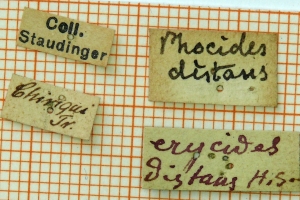 Coll.
Staudinger
Chiriqui
Tr.
Phocides
distans
erycides
distans H.S.